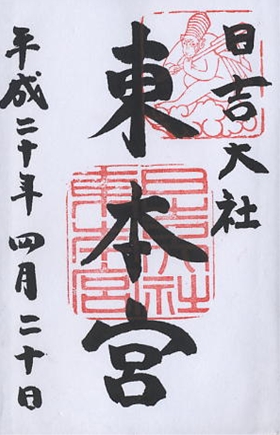 日吉大社
東本宮
平成二十年四月二十日
日吉大社
東本宮